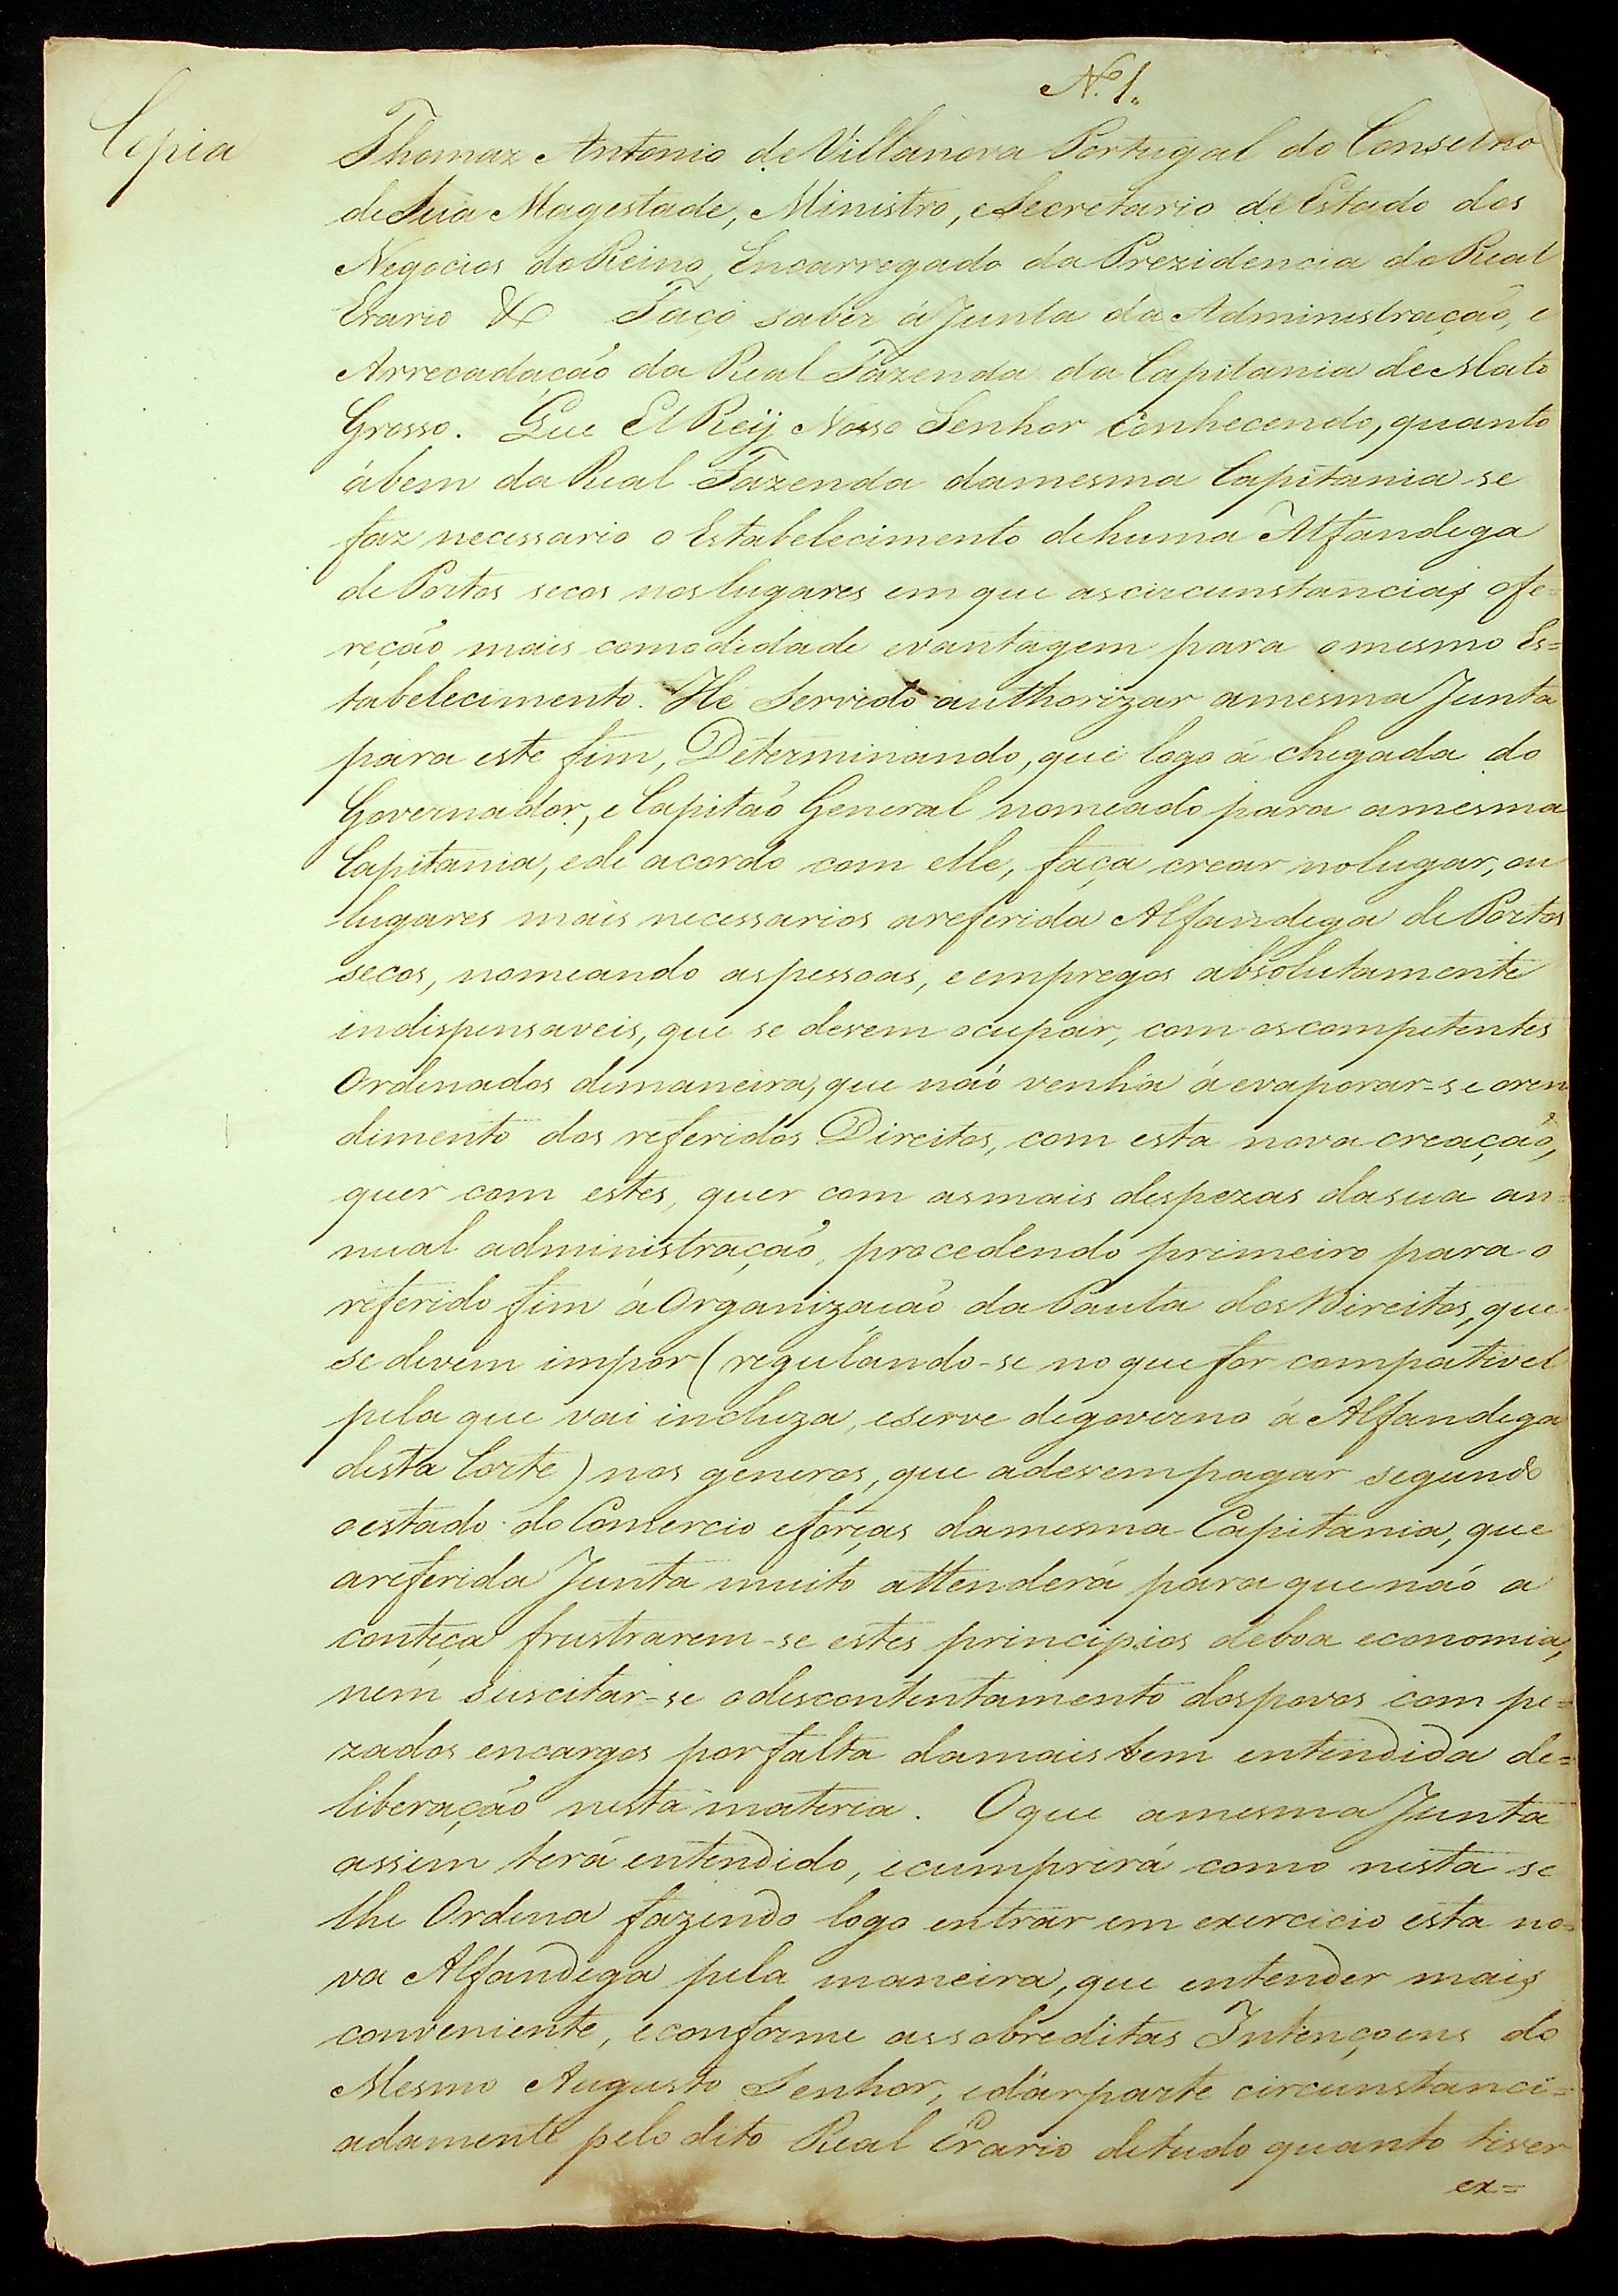 Nº 1.
Copia
Thomaz Antonio de Villanova Portugal do Conselho
de Sua Magestade, Ministro, e Secretario de Estado dos
Negocios do Reino, Encarregado da Prezidencia do Real
Erario & Faço saber á Junta da Administração, e
Arrecadação da Real Fazenda da Capitania de Mato
Grosso. Que El Reÿ Nosso Senhor Conhecendo, quanto
á bem da Real Fazenda da mesma Capitania se
faz necessario o Estabelecimento de huma Alfandega
de Portos secos nos lugares em que as circunstancias ofe=
reção mais comodidade e vantagem para o mesmo Es=
tabelecimento. Hé Servido authorizar a mesma Junta
para este fim, Determinando, que logo á chegada do
Governador, e Capitão General nomeado para a mesma
Capitania, e de acordo com elle, faça crear no lugar, ou
lugares mais necessarios a referida Alfandega de Portos
secos, nomeando as pessoas, e empregos absolutamente
indispensaveis, que se devem ocupar, com os competentes
Ordenados de maneira, que não venha á evaporar-se o ren
dimento dos referidos Direitos, com esta nova creação,
quer com estes, quer com as mais despezas da sua an=
nual administração, procedendo primeiro para o
referido fim á Organização da Pauta dos Direitos, que
se devem impor (regulando-se no que for compativel
pela que vai incluza, e serve de governo á Alfandega
desta Corte) nos generos, que a devem pagar segundo
o estado do Comercio e forças da mesma Capitania, que
a referida Junta muito attenderá para que não a
conteça frustrarem-se estes principios de boa economia,
nem suscitar-se o descontentamento dos povos com pe=
zados encargos por falta da mais bem entendida de=
liberação nesta materia. O que a mesma Junta
assim terá entendido, e cumprirá como nesta se
lhe Ordena fazendo logo entrar em exercicio esta no=
va Alfandega pela maneira, que entender mais
conveniente, e conforme as sobreditas Intençoens do
Mesmo Augusto Senhor, e dár parte circunstanci=
adamente pelo dito Real Erario de tudo quanto tiver
ex=